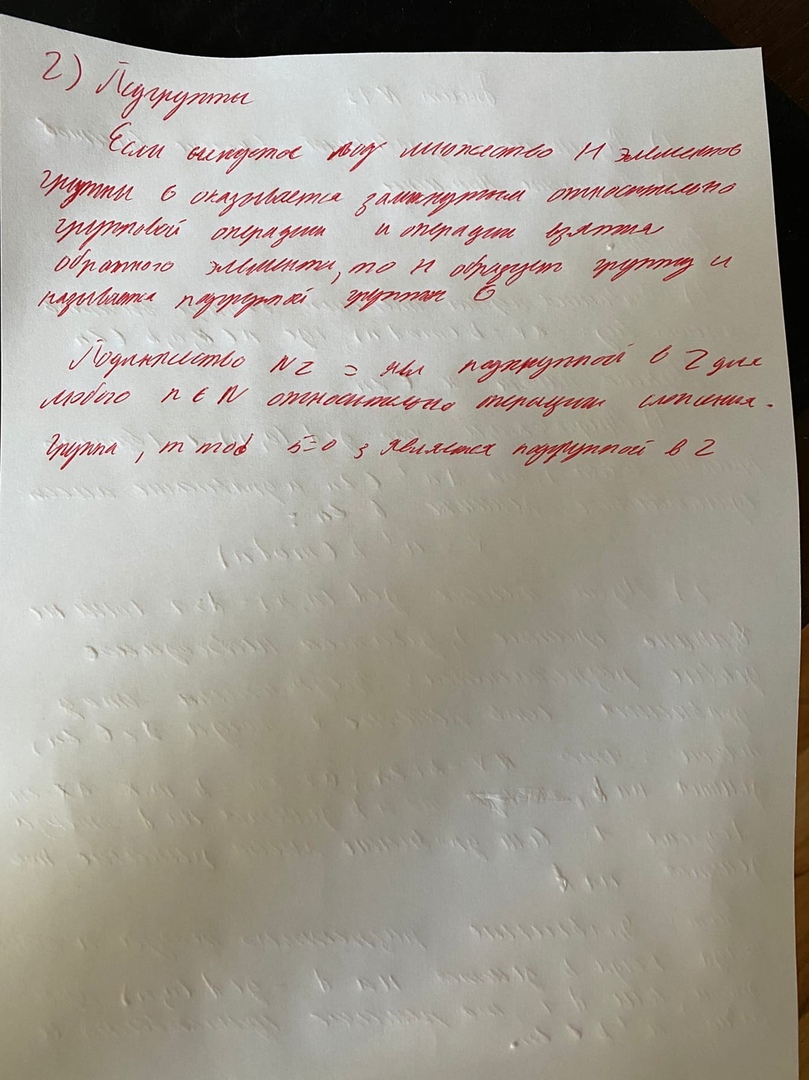 2) Подгруппы
Если непустое под множество H элементов
группы G оказывается замкнутым относительно
групповой операции и операции взятия
обратного элемента, то H образует группу и
называется подгруппой группы G
Подмножество NZ = явл подгруппой в Z для
любого n ∈ N относительно операции сложения.
Группа, m mod 5=0 является подгруппой в Z